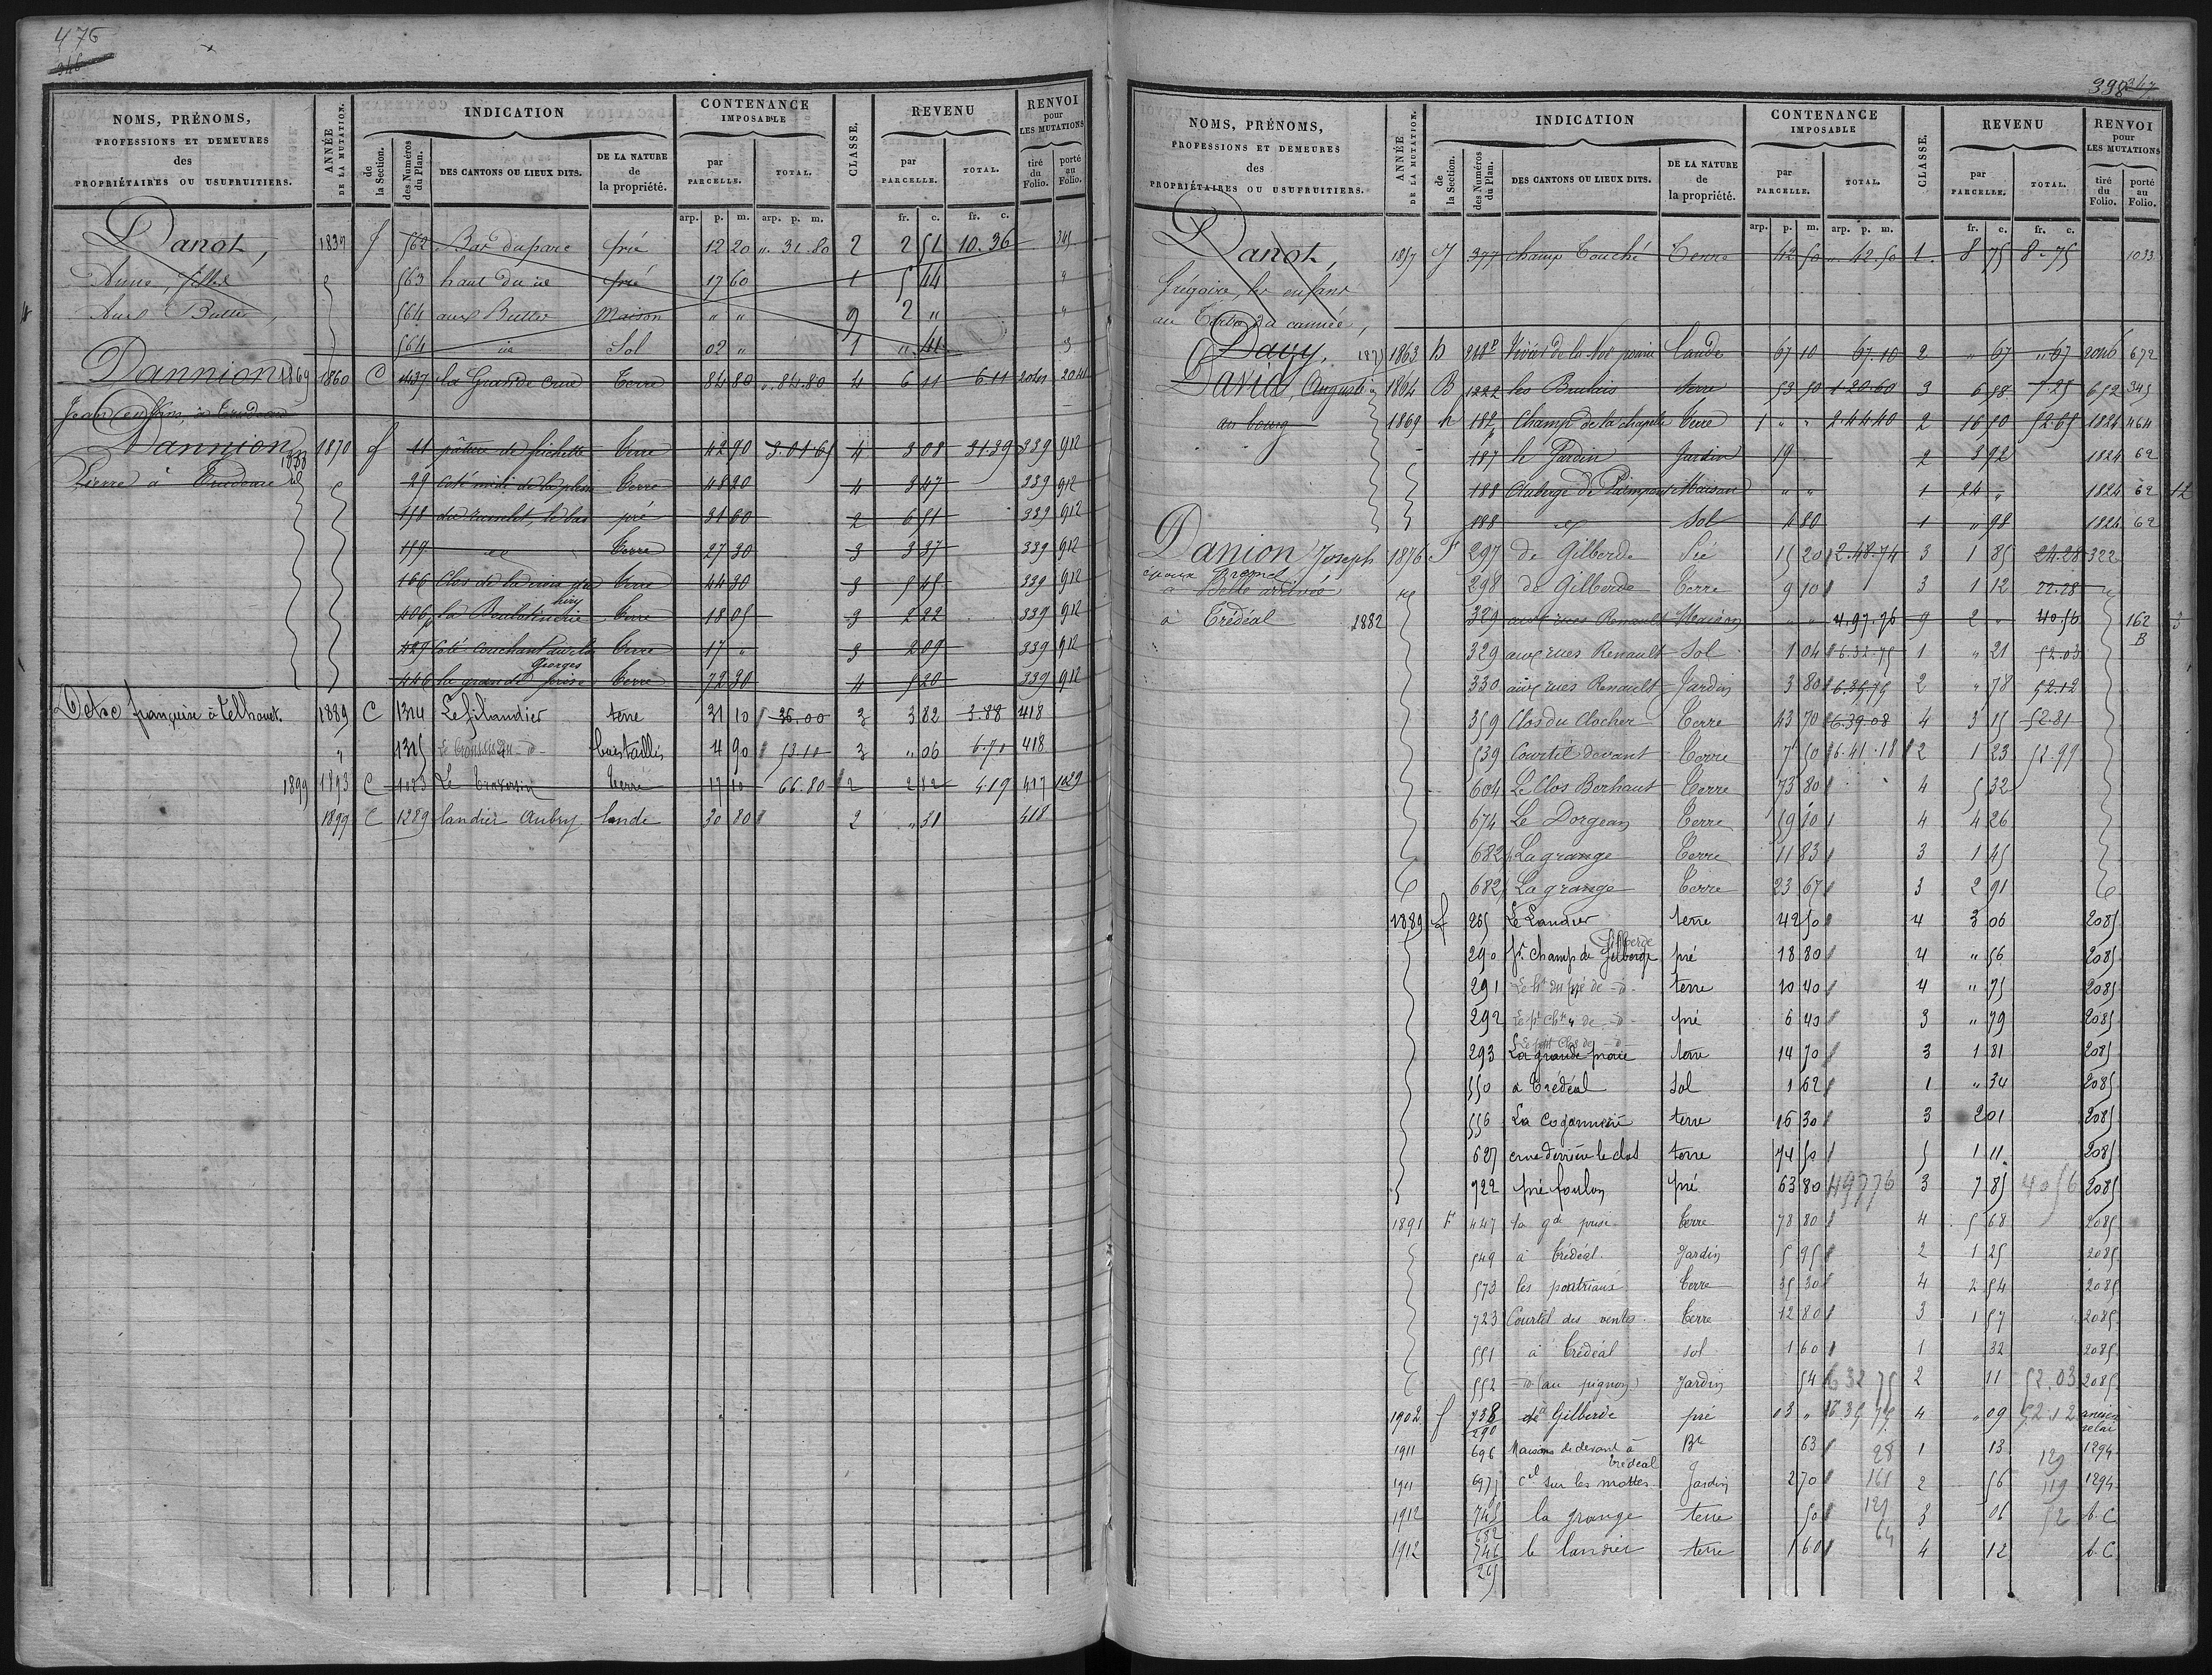 476
346
NOMS, PRÉNOMS,
PROFESSIONS ET DEMEURES
des
PROPRIÉTAIRES OU USUFRUITIERS.
ANNÉE
DE LA MUTATION.
INDICATION
de
la Section.
des Numéros
du Plan.
DES CANTONS OU LIEUX DITS.
DE LA NATURE
de
la propriété.
CONTENANCE
IMPOSABLE
par
PARCELLE.
TOTAL.
CLASSE.
REVENU
par
PARCELLE.
TOTAL.
RENVOI
pour
LES MUTATIONS
tiré
du
Folio.
porté
au
Folio.
arp. p. m. arp. p. m. fr. c. fr. c.
Danot, 1837 J 562 Bas du parc pré 12 20 " 32.80 2 2 51 10.36 345
Anne, 563 haut du id pré 17 60 1 5 44 "
aux Buttes, 564 aux Buttes Maison " " 9 2 " "
564 id Sol 02 " 1 " 41 3
Dannion 1869 1860 C 1437 la Grande Crue Terre 84 80 " 84.80 4 6 11 6.11 2041 2041
Jean enfans, à Trudeau
Dannion 1870 f 11 pâture de fichette Terre 42 90 3.01.65 4 3 08 31.39 339 912
Pierre à Trudeau 1888 99 coté midi de la plesse Terre 48 20 4 3 47 339 912
158 du ruisselot, le bas pré 31 60 2 6 51 339 912
159 id Terre 27 30 3 3 37 339 912
166 Clos de la croix Terre 44 30 3 5 45 339 912
406p la Boulotinerie Terre 18 05 3 2 22 339 912
429 Coté couchant Terre 17 " 3 2 09 339 912
Georges
446 la grande prise Terre 72 30 4 5 20 339 912
françoise à telhouet. 1889 C 1314 Le filandier terre 31 10 36.00 3 3 82 3.88 418
" 1315 bois taillis 4 90 53.10 3 " 06 6.70 418
1899 1893 C 1023 Le traversin terre 17 10 66.80 2 2 82 4.19 417 1029
1899 C 1289 landier Aubry lande 30 80 2 " 31 418
398 347
NOMS, PRÉNOMS,
PROFESSIONS ET DEMEURES
des
PROPRIÉTAIRES OU USUFRUITIERS.
ANNÉE
DE LA MUTATION.
INDICATION
de
la Section.
des Numéros
du Plan.
DES CANTONS OU LIEUX DITS.
DE LA NATURE
de
la propriété.
CONTENANCE
IMPOSABLE
par
PARCELLE.
TOTAL.
CLASSE.
REVENU
par
PARCELLE.
TOTAL.
RENVOI
pour
LES MUTATIONS
tiré
du
Folio.
porté
au
Folio.
arp. p. m. arp. p. m. fr. c. fr. c.
Danot, 1857 J 377 champ Touché Terre 42 50 " 42.50 1 8 75 8.75 1033
Grégoire, les enfans
au
Davy, 1875 1863 h Lande 67 10 67.10 2 " 67 " 67 2046 672
David, Auguste 1864 B 1222 les Brulais terre 53 50 1.20.60 3 6 58 7.25 652 345
au bourg 1869 h 182p Champ de la chapelle Terre 1 " " 2.44.40 2 16 50 52.65 1824 464
187 le Jardin Jardin 19 " 2 3 92 1824 62
188 Auberge de Paimpont Maison " " 1 24 " 1824 62 12
188 id Sol 4 80 1 " 98 1824 62
Danion Joseph 1876 F 297 de Gilberde Pré 15 20 2.48.74 3 1 85 24.28 322
époux 298 de Gilberde Terre 9 10 3 1 12 22.28
à Belle arrivée
à Trédéal 1882 329 aux rues Renault Maison " " 4.97.76 9 2 " 40.56 162 3
B
329 aux rues Renault Sol 1 04 6.32.75 1 " 21 52.03
330 aux rues Renault Jardin 3 80 6.35.75 2 " 78 52.12
359 Clos du Clocher Terre 43 70 6.39.08 4 3 15 52.81
539 Courtil devant Terre 7 50 6.41.18 2 1 23 52.99
604 Le Clos Berhaut Terre 73 80 4 5 32
674 Le Dorgean Terre 59 10 4 4 26
682p La grange Terre 11 83 3 1 45
682p La grange Terre 23 67 3 2 91
1889 f 265 Le Landier terre 42 50 4 3 06 2085
Gilberde
290 pt champ de Gilberge pré 18 80 4 " 56 2085
291 Le ht du pré de -d- terre 10 40 4 " 75 2085
292 pré 6 40 3 " 79 2085
Le petit Clos de -d-
293 La grande praie terre 14 70 3 1 81 2085
550 à Trédéal Sol 1 62 1 " 34 2085
556 La Cojannerie terre 16 30 3 2 01 2085
627 crue derrière le clos terre 74 50 5 1 11 2085
722 pré foulon pré 63 80 49776 3 7 85 4056 2085
1891 F 447 la gde prise Terre 78 80 4 5 68 2085
549 à Trédéal Jardin 5 95 2 1 25 2085
573 les poutriaux Terre 35 30 4 2 54 2085
723 Courtil des ventes Terre 12 80 3 1 57 2085
551 à Trédéal sol 1 60 1 32 2085
552 -d- (au pignon) Jardin 54 632 75 2 11 52.03 2085
1902 f 738 à Gilberde pré 03 " 6.35 75 4 " 09 52.12 ancien
290 relai
1911 696 Maisons de devant à Bt 63 28 1 13 129 1294
Trédéal
1911 697p Cil sur les mottes Jardin 2 70 161 2 56 119 1294
1912 745 la grange terre 50 129 3 06 52 b.C
682 64
1912 746 le landier terre 1 60 4 12 b.C
265